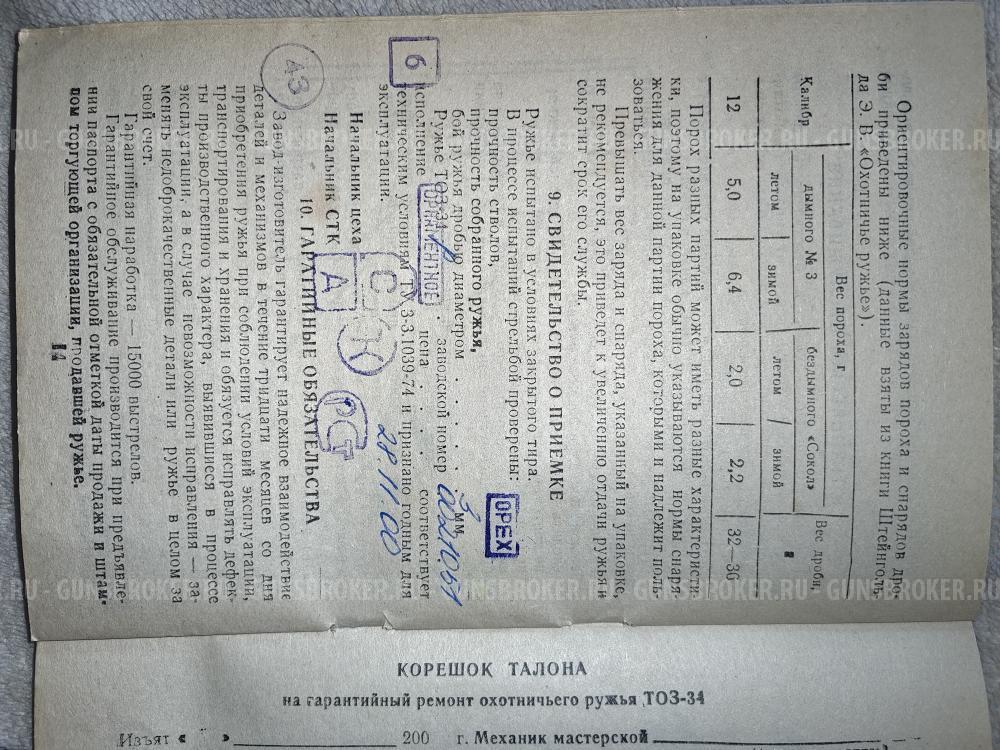 Ориентировочные нормы зарядов пороха и снарядов дро-
би приведены ниже (данные взяты из книги Штейнголь-
да Э. В. «Охотничье ружье»).
Калибр
Вес пороха, г
Вес дроби,
г
дымного № 3
бездымного «Сокол»
летом
зимой
летом
зимой
12
5,0
6,4
2,0
2,2
32—36
Порох разных партий может иметь разные характеристи-
ки, поэтому на упаковке обычно указываются нормы снаря-
жения для данной партии пороха, которыми и надлежит поль-
зоваться.
Превышать вес заряда и снаряда, указанный на упаковке,
не рекомендуется, это приведет к увеличению отдачи ружья и
сократит срок его службы.
9. СВИДЕТЕЛЬСТВО О ПРИЕМКЕ
Ружье испытано в условиях закрытого тира.
В процессе испытаний стрельбой проверены:
прочность стволов,
прочность собранного ружья,
бой ружья дробью диаметром 3 мм.
ОРЕХ
Ружье ТОЗ-34 заводской номер
исполнение ОРНАМЕНТНОЕ цена соответствует
техническим условиям ТУ 3-3.1109-74 и признано годным для
эксплуатации.
б
Начальник цеха
Начальник СТК
С
А
К
РСТ
28 11 00
43
10. ГАРАНТИЙНЫЕ ОБЯЗАТЕЛЬСТВА
Завод-изготовитель гарантирует надежное взаимодействие
деталей и механизмов в течение тридцати месяцев со дня
приобретения ружья при соблюдении условий эксплуатации,
транспортирования и хранения и обязуется исправлять дефек-
ты производственного характера, выявившиеся в процессе
эксплуатации, а в случае невозможности исправления — за-
менять недоброкачественные детали или ружье в целом за
свой счет.
Гарантийная наработка — 15000 выстрелов.
Гарантийное обслуживание производится при предъявле-
нии паспорта с обязательной отметкой даты продажи и штам-
пом торгующей организации, продавшей ружье.
14
КОРЕШОК ТАЛОНА
на гарантийный ремонт охотничьего ружья ТОЗ-34
Изъят « » 200 г. Механик мастерской
GUNSBROKER.RU - GUNSBROKER.RU - GUNSBROKER.RU